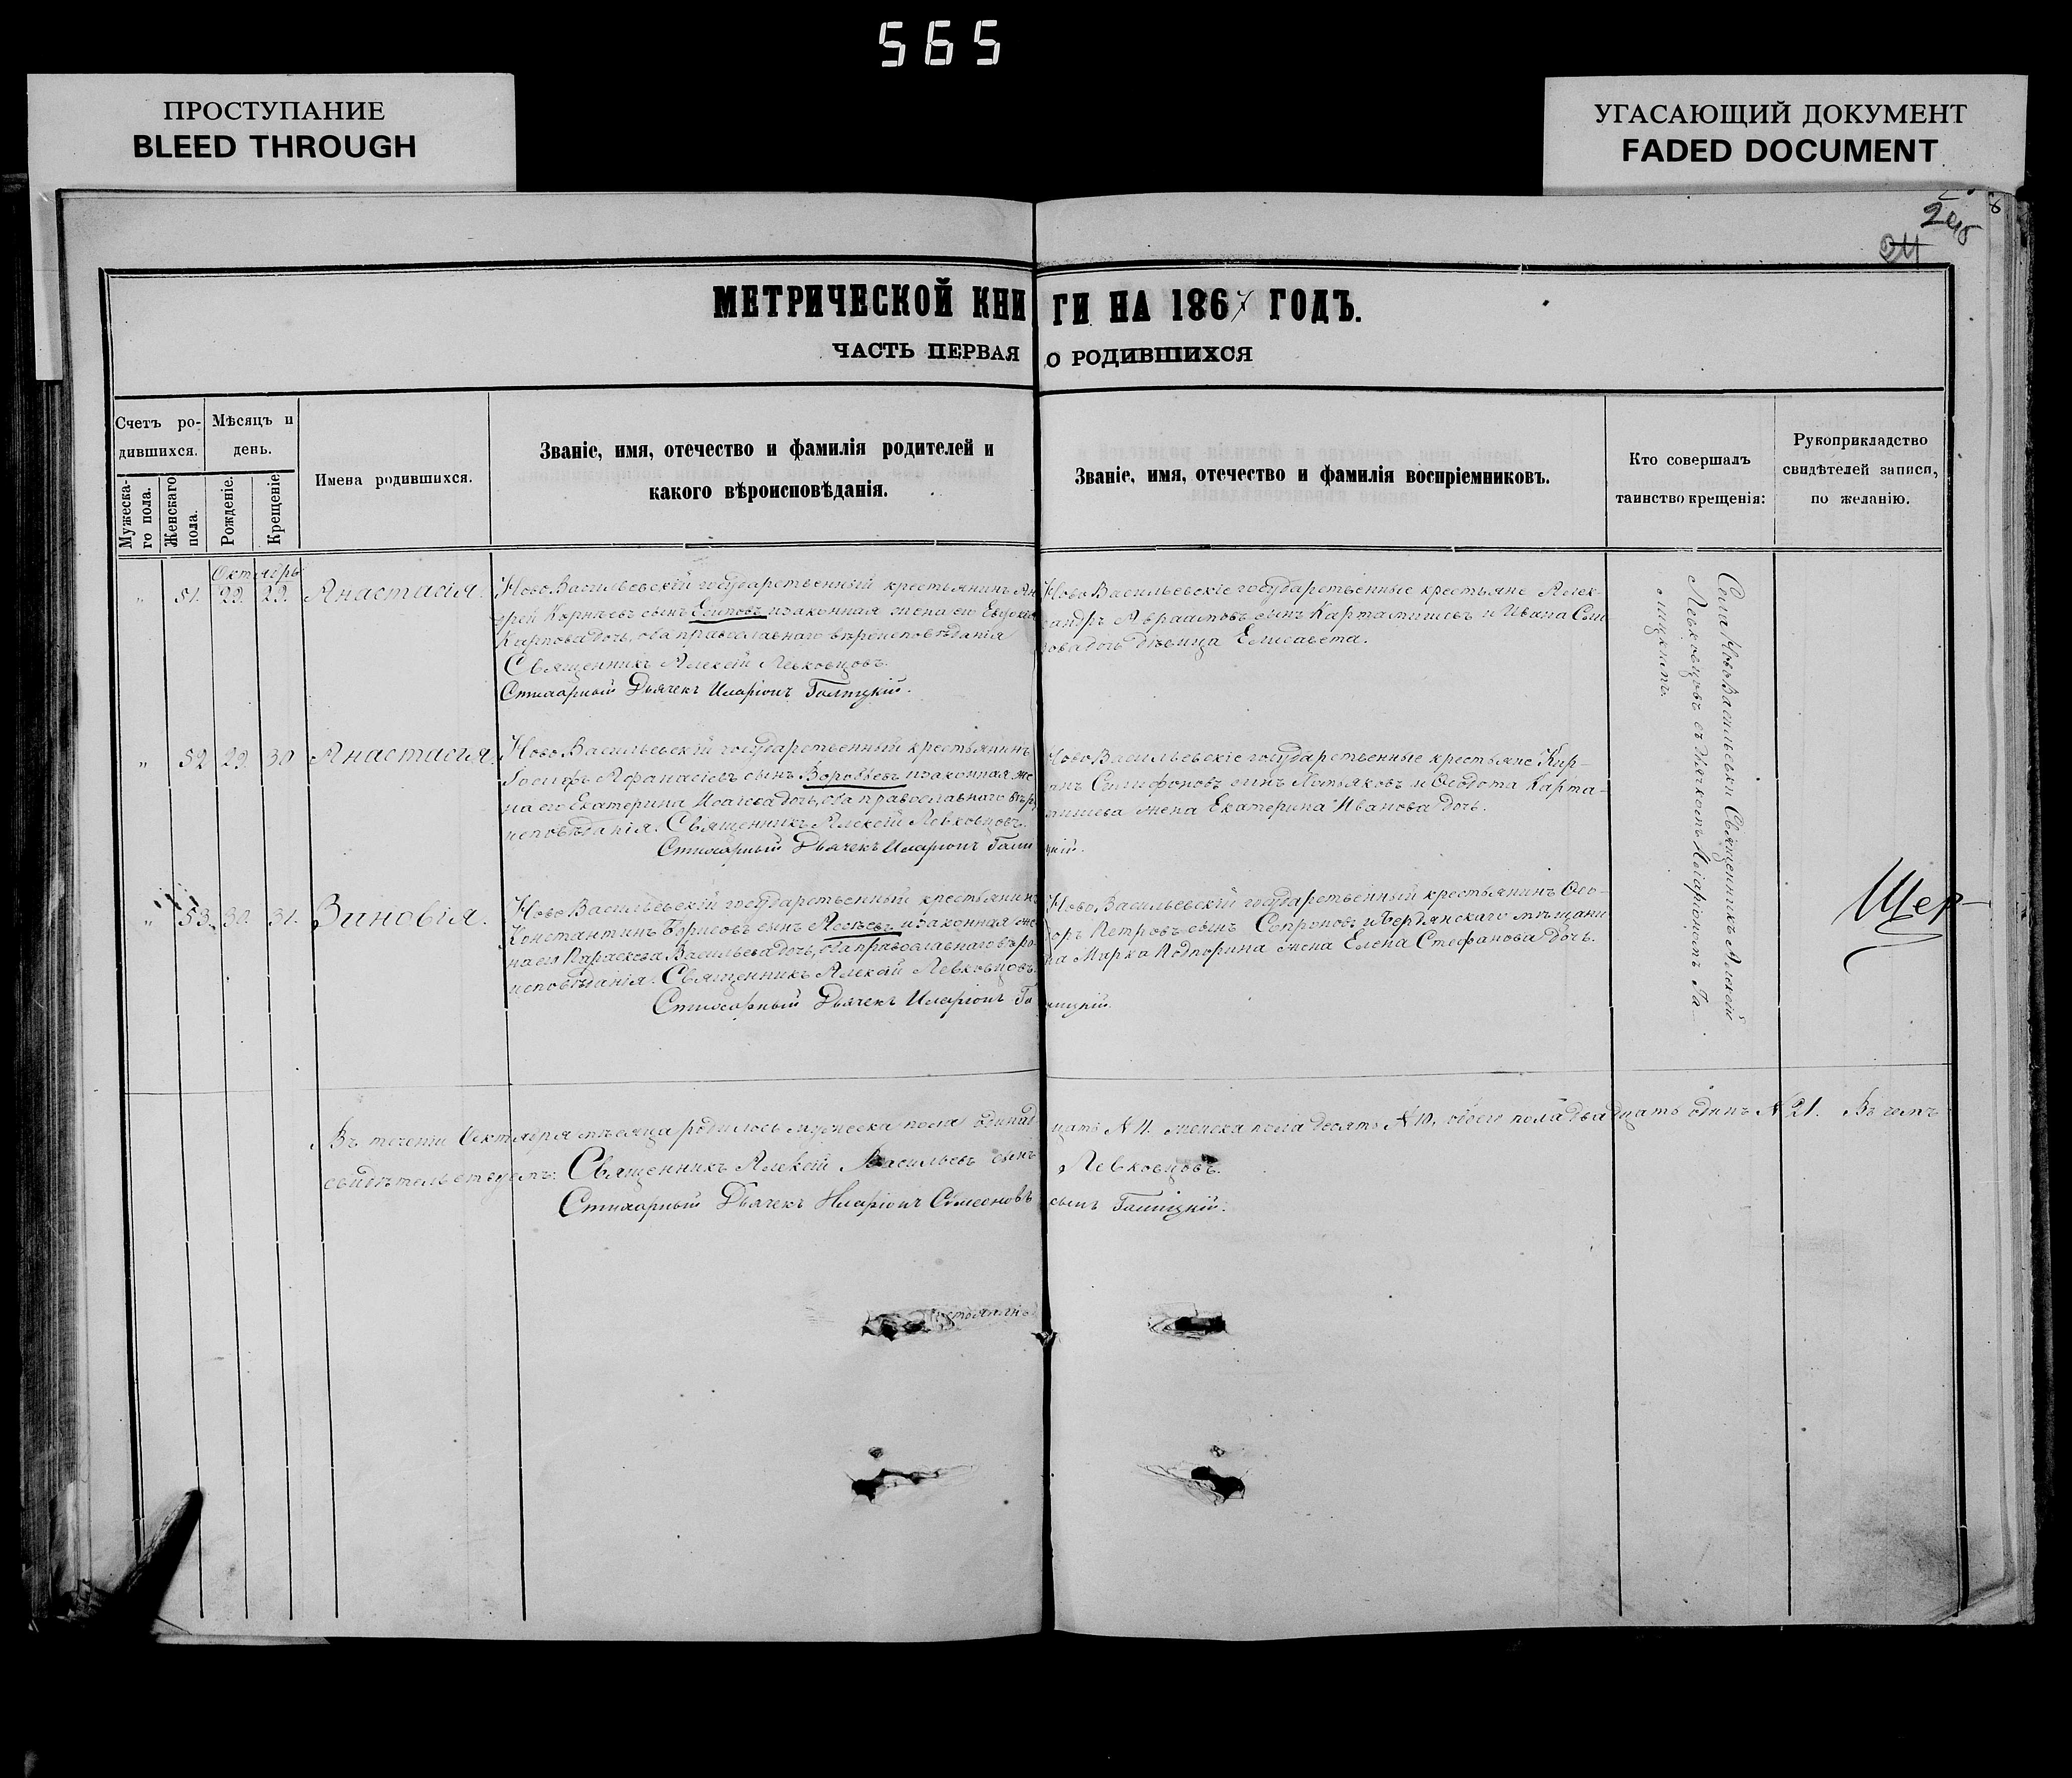 565
ПРОСТУПАНИЕ
BLEED THROUGH
УГАСАЮЩИЙ ДОКУМЕНТ
FADED DOCUMENT
МЕТРИЧЕСКОЙ КНИГИ НА 1867 ГОДЪ.
ЧАСТЬ ПЕРВАЯ О РОДИВШИХСЯ
Счетъ ро-
дившихся.
Мѣсяцъ и
день.
Мужеска-
го пола.
Женскаго
пола.
Рожденіе.
Крещеніе.
Имена родившихся.
Званіе, имя, отечество и фамилія родителей и
какого вѣроисповѣданія.
Званіе, имя, отечество и фамилія воспріемниковъ.
Кто совершалъ
таинство крещенія:
Рукоприкладство
свидѣтелей записи,
по желанію.
Октябрь
„ 51. 22. 22. Анастасія.
НовоВасильевскій государственный крестьянинъ Ан
дрей Корнѣевъ сынъ Есиповъ и законная жена его
Карпова дочь, оба православнаго вѣроисповѣданія
Священникъ Алексій Левковцовъ.
Стихарный Дьячекъ Иларіонъ Галицкій.
НовоВасильевскіе государственные крестьяне Алек-
сандръ Авраамовъ сынъ Картамышевъ и Ивана
дочь дѣвица Елисавета.
„ 52 29. 30 Анастасія.
НовоВасильевскій государственный крестьянинъ
Іосифъ Афанасіевъ сынъ Воробьевъ и законная же
на его Екатерина Исаева дочь, оба православнаго вѣро
исповѣданія. Священникъ Алексій Левковцовъ.
Стихарный Дьячекъ Иларіонъ Галицкій.
НовоВасильевскіе государственные крестьяне Кир-
сынъ и Ѳедота Карта-
мышева жена Екатерина Иванова дочь.
„ 53. 30. 31. Зиновія.
НовоВасильевскій государственный крестьянинъ
Константинъ Борисовъ сынъ и законная же
на его Параскева Васильева дочь, оба православнаго вѣро
исповѣданія. Священникъ Алексій Левковцовъ.
Стихарный Дьячекъ Иларіонъ Галицкій.
НовоВасильевскій государственный крестьянинъ Ѳео-
доръ Петровъ сынъ Сопроновъ и Бердянскаго мѣщани
на Марка Подпорина жена Елена Стефанова дочь.
Села НовоВасильевки Священникъ Алексій
Левковцовъ съ Дьячкомъ Иларіономъ Га-
лицкимъ.
Щер-
Въ теченіи Октября мѣсяца родилось мужеска пола одинадцать № 11. женска пола десять № 10, обоего пола двадцать одинъ № 21. Въ чемъ
свидѣтельствуемъ: Священникъ Алексій Васильевъ сынъ Левковцовъ.
Стихарный Дьячекъ Иларіонъ Симеоновъ сынъ Галицкій.